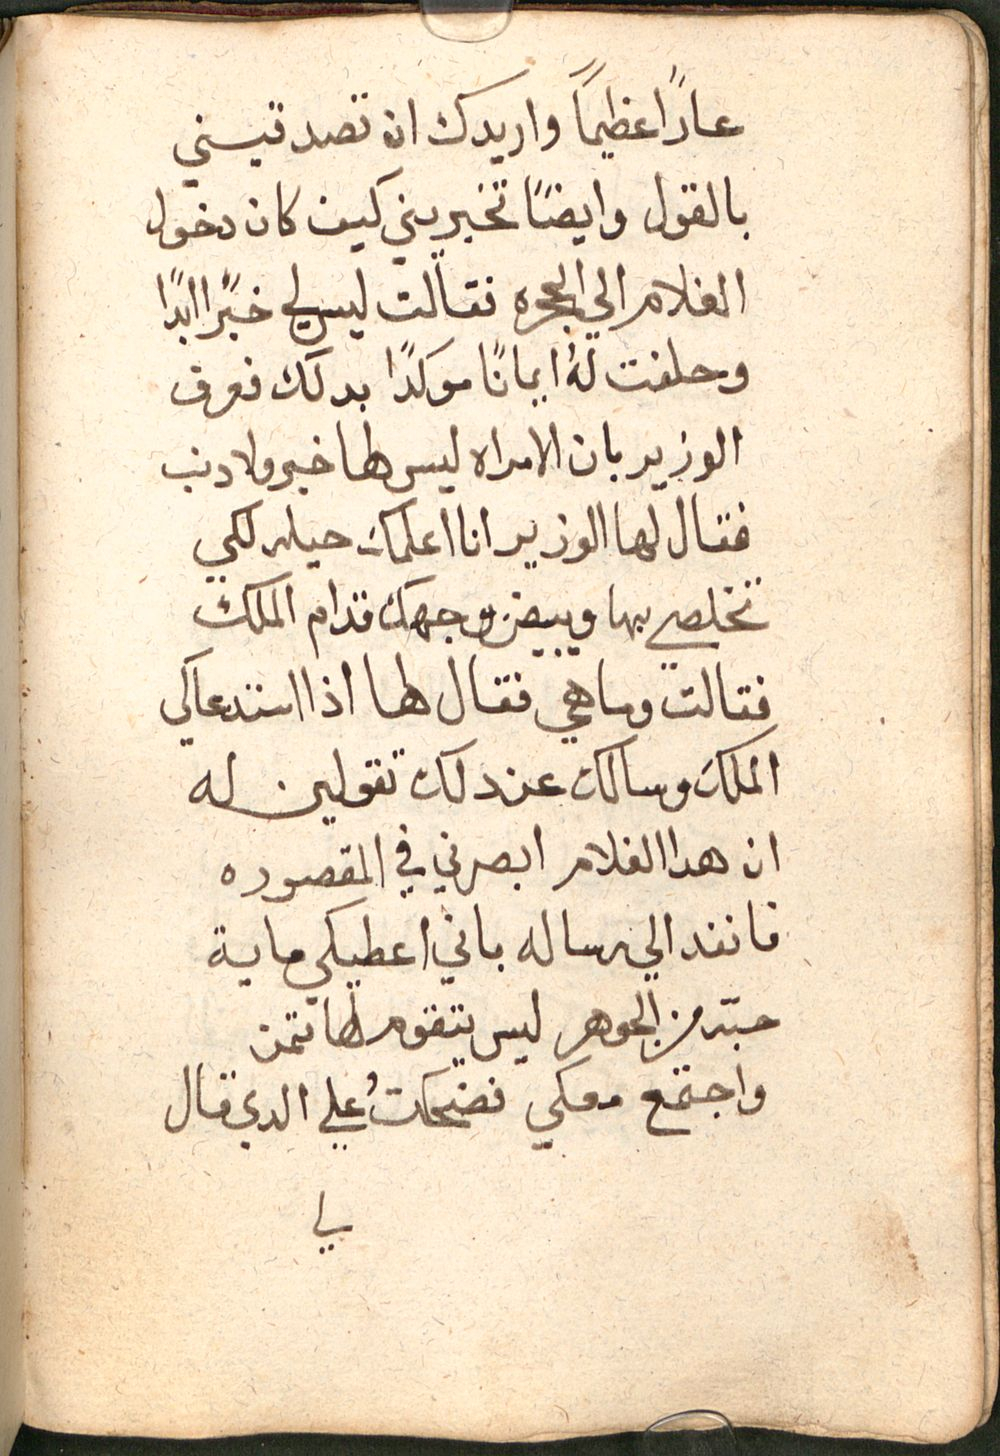 عارًا عظيمًا واريدك ان تصدقيني
بالقول وايضًا تخبريني كيف كان دخول
الغلام الي الحجره فقالت ليس لي خبرًا ابدًا
وحلفت لهُ ايمانًا موكدًا بدلك فعرف
الوزير بان الامراه ليس لها خبر ولا دنب
فقال لها الوزير انا اعلمك حيله لكي
تخلصي بها ويبيض وجهك قدام الملك
فقالت وما هي فقال لها اذا استدعاكي
الملك وسالك عن دلك تقولين له
ان هدا الغلام ابصرني في المقصوره
فانفد الي رساله باني اعطيكي ماية
حبّه من الجوهر ليس يتقوم لها بتمن
واجتمع معكي فضحكتُ علي الدي قال
لي